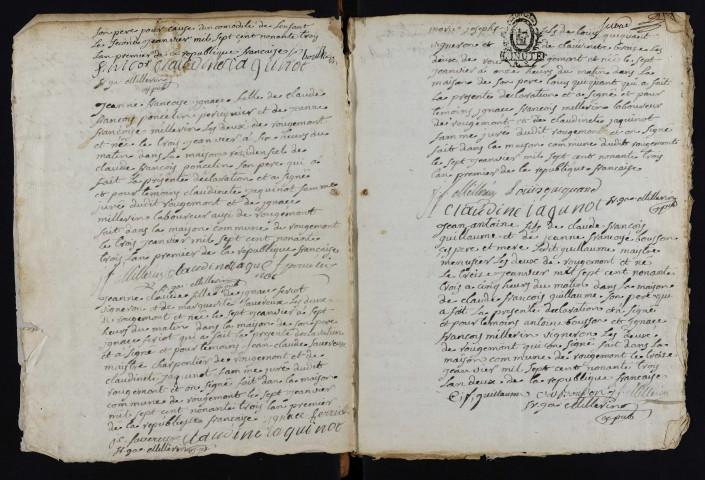 son pere pour cause dincomodite de lenfant
le second janvier mil sept cent nonante trois
lan premier de la republique francaise
claudine Jaquinot
jeanne francoise ignace fille de claude
francois poncelin perruquier et de jeanne
francoise millerin les deux de rougemont
et née le trois janvier a six heures du
matin dans la maison residentiele de
claude francois poncelin son pere qui a
fait la presente declaration et a signé
et pour temoins claudinete jaquinot samme
jurée dudit rougemont et de ignace
millerin laboureur aussi de rougemont
fait dans la maison commune de rougemont
le trois janvier mil sept cent nonante
trois lan premier de la republique francaise
millerin claudinet Jaqui
not
jeanne claude fille de ignace feriot
vigneron et de marguerite sauvereux les deux
de rougemont et née le sept janvier a sept
heures du matin dans la maison de son pere
ignace feriot qui a fait la presente declaration
et a signé et pour temoins jean claude sauvereux
maistre charpentier de rougemont et de
claudinete jaquinot samme jurée dudit
rougemont et ont signé fait dans la maison
commune de rougemont le sept janvier
mil sept cent nonante trois lan premier
de la republique francaise
claudine Jaquinot
marie josephe fils de louis quiquand
vigneron et de claudinete les
deux de rougemont et née le sept
janvier a onze heures du matin dans la
maison de son pere louis quiquand qui a fait
la presente declaration et a signé et pour
temoins ignace francois millerin laboureur
de rougemont et de claudinete jaquinot
samme jurée dudit rougemont et ont signé
fait dans la maison commune dudit rougemont
le sept janvier mil sept cent nonante trois
lan premier de la republique francaise
millerin Louis quiquand
claudine Jaquinot
jean antoine fils de claude francois
guillaume et de jeanne francoise bousson
ses pere et mere ledit guillaume maistre
menusier les deux de rougemont et né
le treize janvier mil sept cent nonante
trois a cinq heures du matin dans la maison
de claude francois guillaume son pere qui
a fait la presente declaration et a signé
et pour temoins antoine bousson et ignace
francois millerin vignerons les deux
de rougemont qui ont signé fait dans la
maison commune de rougemont le treize
janvier mil sept cent nonante trois
lan deux de la republique francaise
guillaume bousson millerin